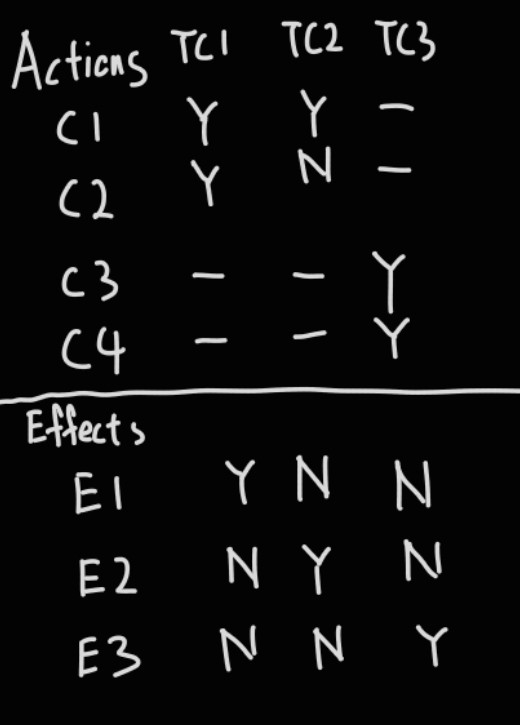 Actions TC1 TC2 TC3
C1 Y Y –
C2 Y N –
C3 – – Y
C4 – – Y
Effects
E1 Y N N
E2 N Y N
E3 N N Y